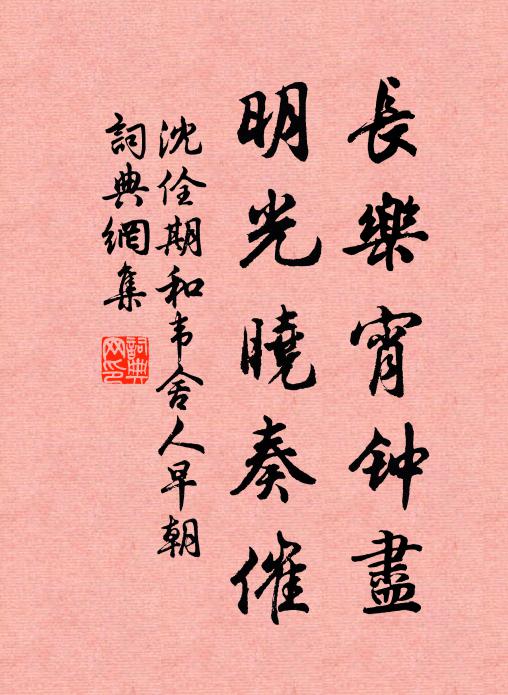 長樂宵钟盡
明光曉奏催
沈佺期和韦舍人早朝
詞典網集
詞典网印